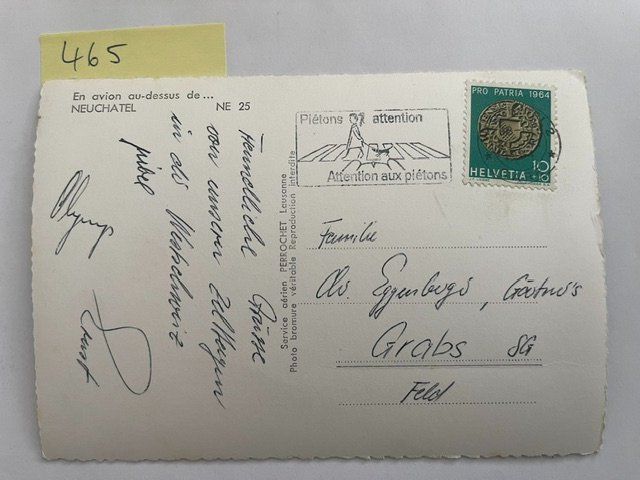 465
En avion au-dessus de...
NEUCHATEL NE 25
Piétons attention
Attention aux piétons
PRO PATRIA 1964
10
+10
HELVETIA
Service aérien PERROCHET Lausanne
Photo bromure véritable Reproduction interdite
Grüsse
von unserer
in die Westschweiz
Familie
Chs. Eggenberger,
Grabs SG
Feld
Ernst